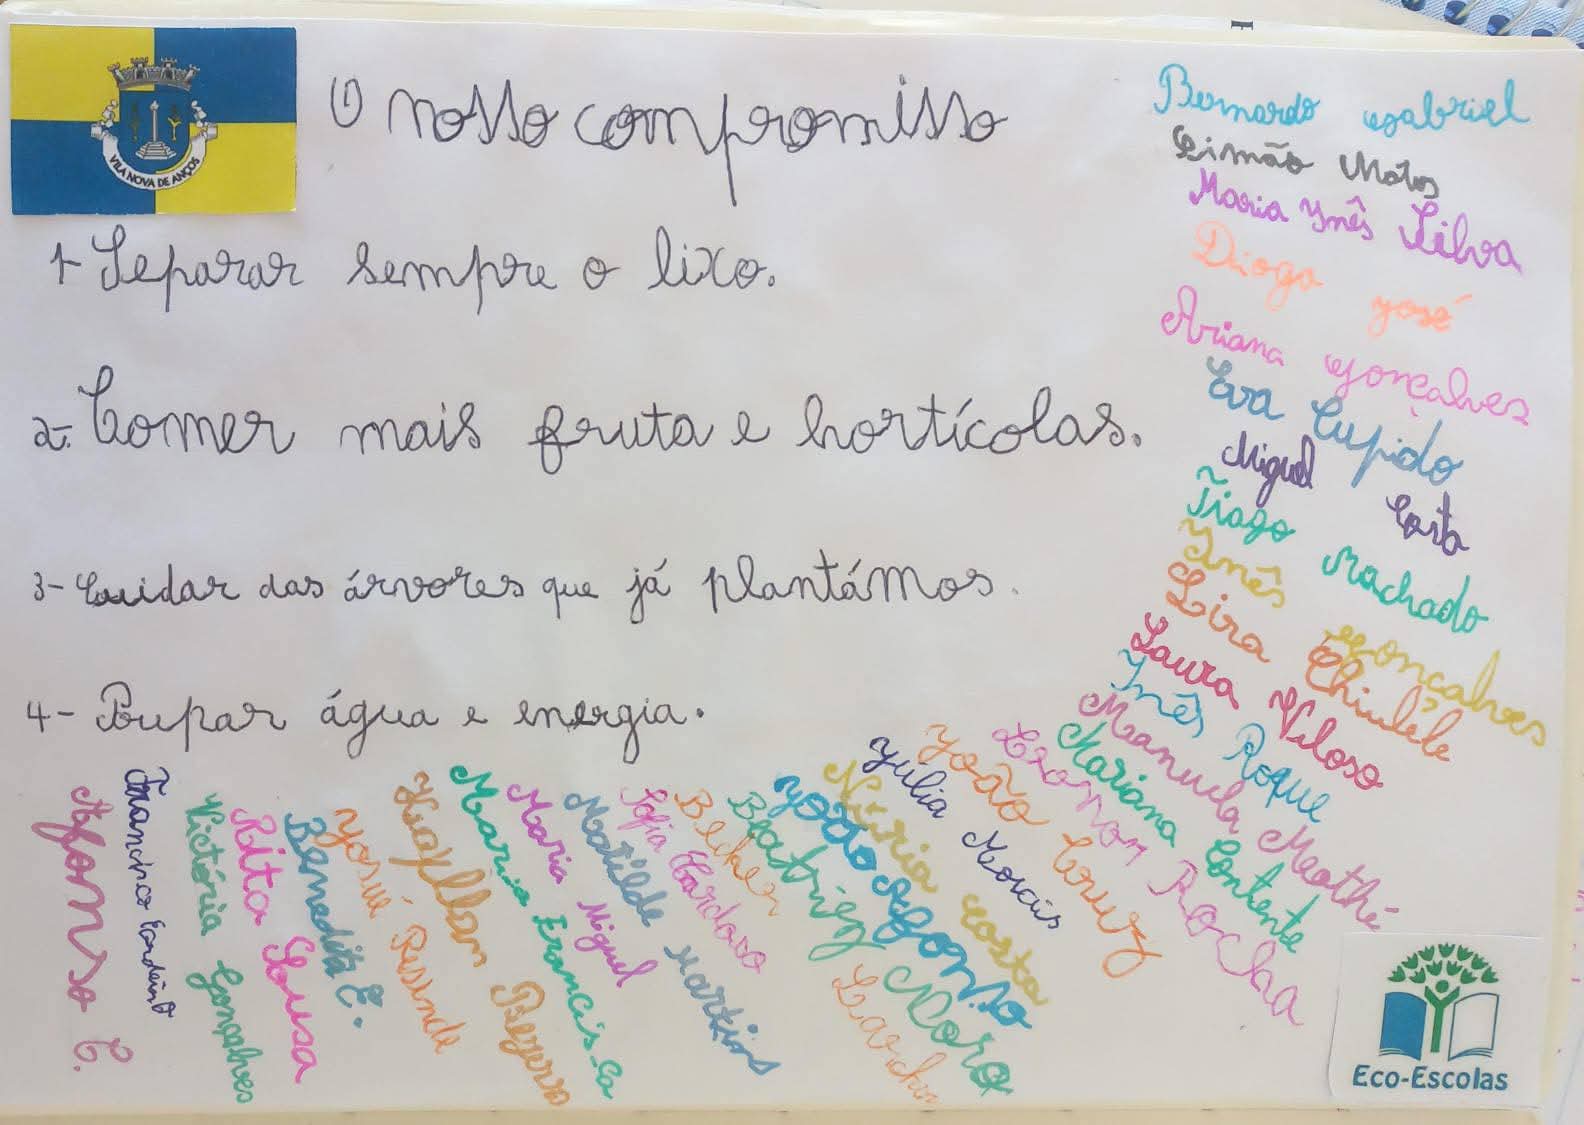 VILA NOVA DE ANÇOS
O nosso compromisso
1- Separar sempre o lixo.
2- Comer mais fruta e hortícolas.
3- Cuidar das árvores que já plantámos.
4- Poupar água e energia.
Bernardo Gabriel
Simão Matos
Maria Inês Silva
Diogo José
Ariana Gonçalves
Eva Cupido
Miguel Costa
Tiago Machado
Inês Gonçalves
Lira Chiulele
Laura Veloso
Inês Roque
Manuela Mathé
Mariana Contente
Leonor Rocha
João Cruz
Júlia Morais
Núria Costa
João Afonso
Beatriz Mora
Belchior Larcher
Sofia Cardoso
Matilde Martins
Maria Miguel
Maria Francisca
Bezerra
Josué Resende
Benedita E.
Rita Sousa
Victória Gonçalves
Francisco Cordeiro
Afonso C.
Eco-Escolas